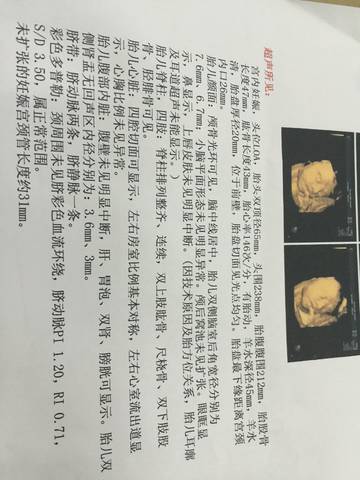 超声所见：
宫内妊娠，头位LOA，胎头双顶径65mm，头围238mm，胎腹围212mm，胎股骨
长度47mm，肱骨长度43mm，胎心率146次/分，有胎动，羊水深径45mm，羊水
清，胎盘厚径20mm，位于前壁，胎盘切面见光点均匀。胎盘最下缘距离宫颈
内口26mm。
胎儿颜面：颅骨光环可见，脑中线居中，胎儿双侧脑室后角宽径分别为
7.6mm、6.7mm；小脑平面形态未见明显异常。颅后窝池未见扩张。眼眶显
示，鼻显示，上唇皮肤未见明显中断。（因技术原因及胎方位关系，胎儿耳廓
及耳道超声未能显示。）
胎儿脊柱，四肢：脊柱排列整齐、连续，双上肢肱骨、尺桡骨、双下肢股
骨、胫腓骨可见。
胎儿心脏：四腔切面可显示，左右房室比例基本对称，左右心室流出道显
示，心胸比例未见异常。
胎儿腹部内脏：腹壁未见明显中断，肝、胃泡、双肾、膀胱可显示。胎儿双
侧肾盂无回声区内径分别为：3.6mm、3mm。
脐带：脐动脉两条，脐静脉一条。
彩色多普勒：颈周围未见脐彩色血流环绕，脐动脉PI 1.20，RI 0.71，
S/D 3.50，属正常范围。
未扩张的妊娠宫颈管长度约31mm。